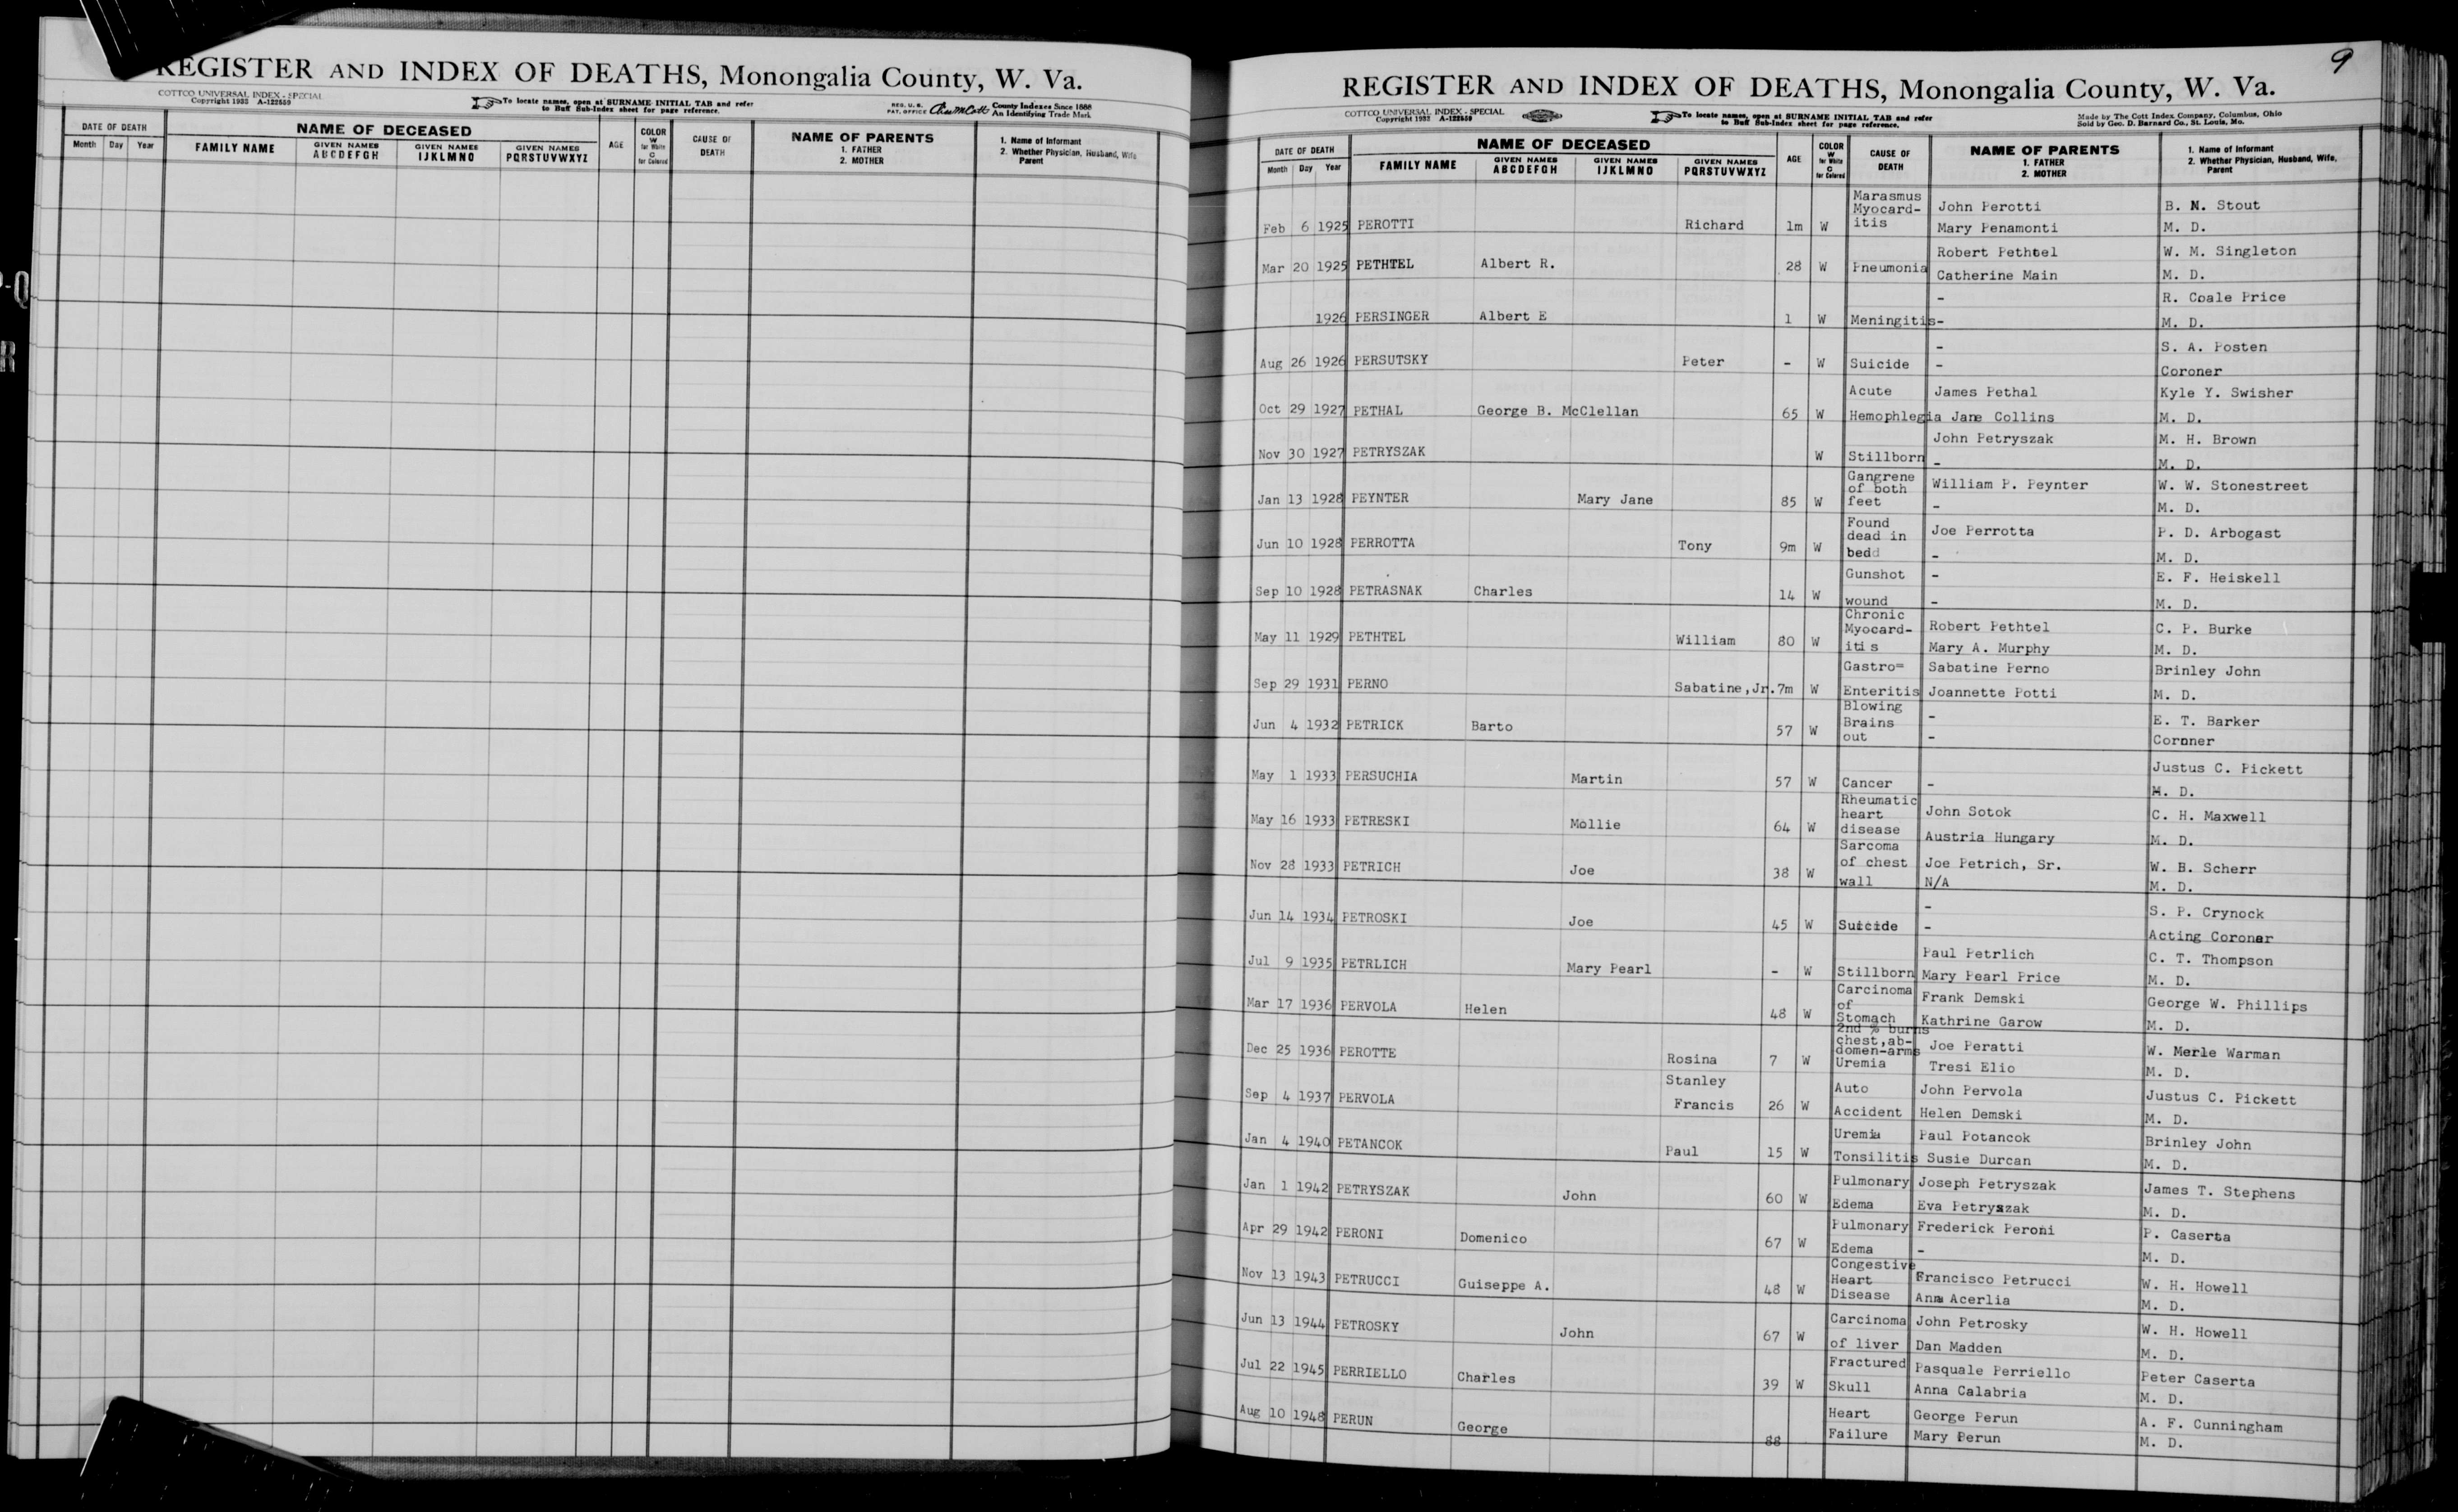 REGISTER AND INDEX OF DEATHS, Monongalia County, W. Va.
COTTCO UNIVERSAL INDEX - SPECIAL
Copyright 1933 A-122559
To locate names, open at SURNAME INITIAL TAB and refer
to Buff Sub-Index sheet for page reference.
REG. U. S.
PAT. OFFICE
County Indexes Since 1888
An Identifying Trade Mark
DATE OF DEATH
Month Day Year
NAME OF DECEASED
FAMILY NAME
GIVEN NAMES
ABCDEFGH
GIVEN NAMES
IJKLMNO
GIVEN NAMES
PQRSTUVWXYZ
AGE
COLOR
W
for White
C
for Colored
CAUSE OF
DEATH
NAME OF PARENTS
1. FATHER
2. MOTHER
1. Name of Informant
2. Whether Physician, Husband, Wife
Parent
P-Q
R
9
REGISTER AND INDEX OF DEATHS, Monongalia County, W. Va.
COTTCO UNIVERSAL INDEX - SPECIAL
Copyright 1933 A-122559
To locate names, open at SURNAME INITIAL TAB and refer
to Buff Sub-Index sheet for page reference.
Made by The Cott Index Company, Columbus, Ohio
Sold by Geo. D. Barnard Co., St. Louis, Mo.
DATE OF DEATH
Month Day Year
NAME OF DECEASED
FAMILY NAME
GIVEN NAMES
ABCDEFGH
GIVEN NAMES
IJKLMNO
GIVEN NAMES
PQRSTUVWXYZ
AGE
COLOR
W
for White
C
for Colored
CAUSE OF
DEATH
NAME OF PARENTS
1. FATHER
2. MOTHER
1. Name of Informant
2. Whether Physician, Husband, Wife,
Parent
Marasmus
Myocard- John Perotti B. N. Stout
Feb 6 1925 PEROTTI Richard 1m W itis Mary Penamonti M. D.
Robert Pethtel W. M. Singleton
Mar 20 1925 PETHTEL Albert R. 28 W Pneumonia Catherine Main M. D.
- R. Coale Price
1926 PERSINGER Albert E 1 W Meningitis - M. D.
- S. A. Posten
Aug 26 1926 PERSUTSKY Peter - W Suicide - Coroner
Acute James Pethal Kyle Y. Swisher
Oct 29 1927 PETHAL George B. McClellan 65 W Hemophlegia Jane Collins M. D.
John Petryszak M. H. Brown
Nov 30 1927 PETRYSZAK W Stillborn - M. D.
Gangrene
of both William P. Peynter W. W. Stonestreet
Jan 13 1928 PEYNTER Mary Jane 85 W feet - M. D.
Found
dead in Joe Perrotta P. D. Arbogast
Jun 10 1928 PERROTTA Tony 9m W bedd - M. D.
Gunshot - E. F. Heiskell
Sep 10 1928 PETRASNAK Charles 14 W wound - M. D.
Chronic
Myocard- Robert Pethtel C. P. Burke
May 11 1929 PETHTEL William 80 W itis Mary A. Murphy M. D.
Gastro= Sabatine Perno Brinley John
Sep 29 1931 PERNO Sabatine,Jr. 7m W Enteritis Joannette Potti M. D.
Blowing
Brains - E. T. Barker
Jun 4 1932 PETRICK Barto 57 W out - Coroner
Justus C. Pickett
May 1 1933 PERSUCHIA Martin 57 W Cancer - M. D.
Rheumatic
heart John Sotok C. H. Maxwell
May 16 1933 PETRESKI Mollie 64 W disease Austria Hungary M. D.
Sarcoma
of chest Joe Petrich, Sr. W. B. Scherr
Nov 28 1933 PETRICH Joe 38 W wall N/A M. D.
- S. P. Crynock
Jun 14 1934 PETROSKI Joe 45 W Suicide - Acting Coroner
Paul Petrlich C. T. Thompson
Jul 9 1935 PETRLICH Mary Pearl - W Stillborn Mary Pearl Price M. D.
Carcinoma
of Frank Demski George W. Phillips
Mar 17 1936 PERVOLA Helen 48 W Stomach Kathrine Garow M. D.
2nd % burns
chest,ab-
domen-arms Joe Peratti W. Merle Warman
Dec 25 1936 PEROTTE Rosina 7 W Uremia Tresi Elio M. D.
Stanley Auto John Pervola Justus C. Pickett
Sep 4 1937 PERVOLA Francis 26 W Accident Helen Demski M. D.
Uremia Paul Potancok Brinley John
Jan 4 1940 PETANCOK Paul 15 W Tonsilitis Susie Durcan M. D.
Pulmonary Joseph Petryszak James T. Stephens
Jan 1 1942 PETRYSZAK John 60 W Edema Eva Petryszak M. D.
Pulmonary Frederick Peroni P. Caserta
Apr 29 1942 PERONI Domenico 67 W Edema - M. D.
Congestive
Heart Francisco Petrucci W. H. Howell
Nov 13 1943 PETRUCCI Guiseppe A. 48 W Disease Anna Acerlia M. D.
Carcinoma John Petrosky W. H. Howell
Jun 13 1944 PETROSKY John 67 W of liver Dan Madden M. D.
Fractured Pasquale Perriello Peter Caserta
Jul 22 1945 PERRIELLO Charles 39 W Skull Anna Calabria M. D.
Heart George Perun A. F. Cunningham
Aug 10 1948 PERUN George 88 Failure Mary Perun M. D.